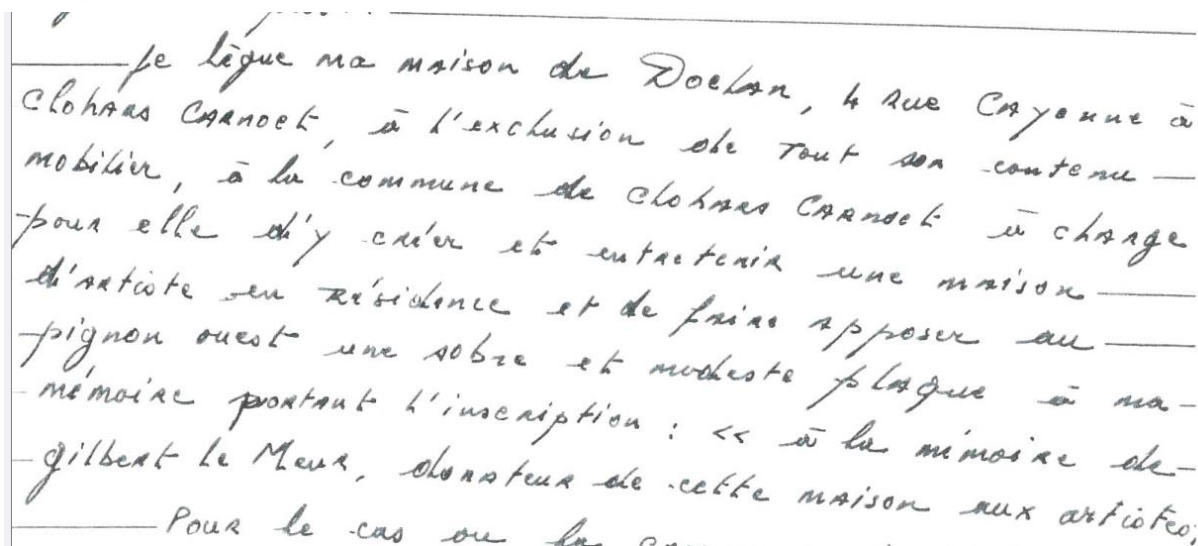 Je lègue ma maison de Doelan, 4 rue Cayenne à
Clohars Carnoet, à l'exclusion de tout son contenu
mobilier, à la commune de Clohars Carnoet à charge
pour elle d'y créer et entretenir une maison
d'artiste en résidence et de faire apposer au
pignon ouest une sobre et modeste plaque à ma
mémoire portant l'inscription : << à la mémoire de
gilbert Le Meur, donateur de cette maison aux artistes,
Pour le cas ou la